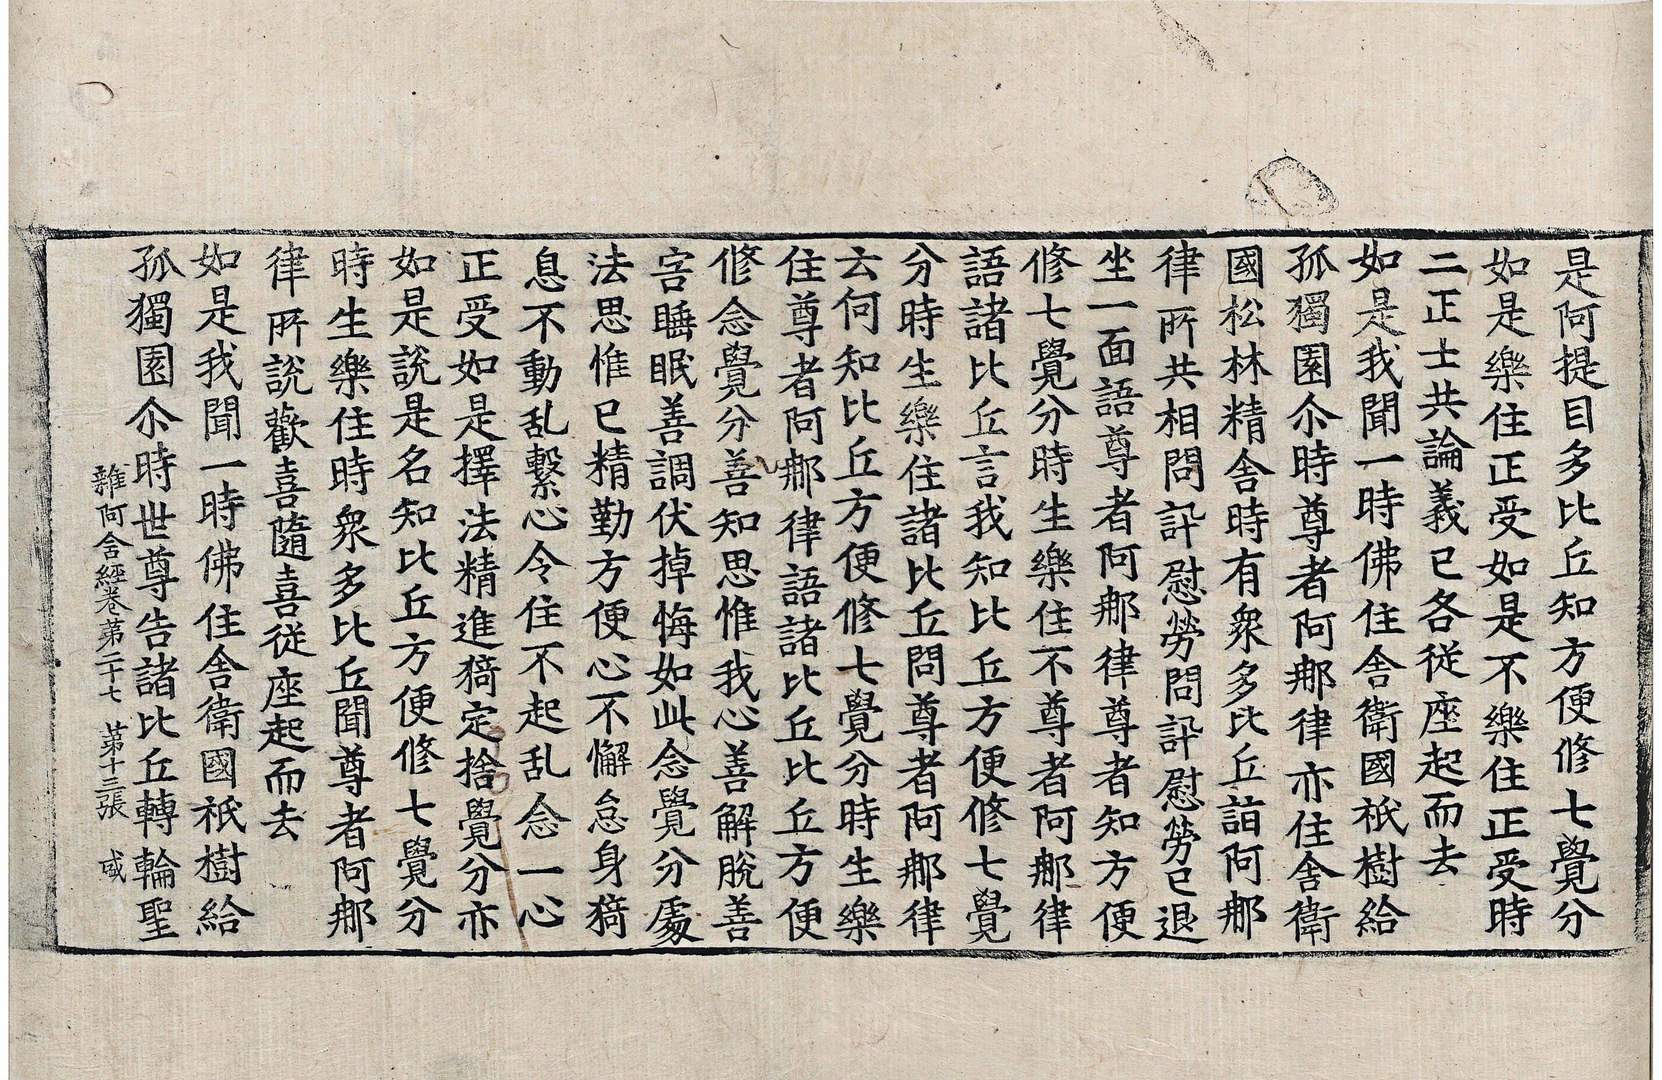 是阿提目多比丘知方便修七覺分
如是樂住正受如是不樂住正受時
二正士共論義已各從座起而去
如是我聞一時佛住舍衛國祇樹給
孤獨園尒時尊者阿那律亦住舍衛
國松林精舍時有衆多比丘詣阿那
律所共相問訊慰勞問訊慰勞已退
坐一面語尊者阿那律尊者知方便
修七覺分時生樂住不尊者阿那律
語諸比丘言我知比丘方便修七覺
分時生樂住諸比丘問尊者阿那律
云何知比丘方便修七覺分時生樂
住尊者阿那律語諸比丘比丘方便
修念覺分善知思惟我心善解脫善
害睡眠善調伏掉悔如此念覺分處
法思惟已精勤方便心不懈怠身猗
息不動乱繫心令住不起乱念一心
正受如是擇法精進猗定捨覺分亦
如是說是名知比丘方便修七覺分
時生樂住時衆多比丘聞尊者阿那
律所說歡喜隨喜從座起而去
如是我聞一時佛住舍衛國祇樹給
孤獨園尒時世尊告諸比丘轉輪聖
雜阿含經卷第二十七 第十三張 咸